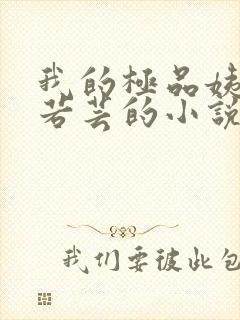 我的極品姨
若芸的小說
我们要彼此包